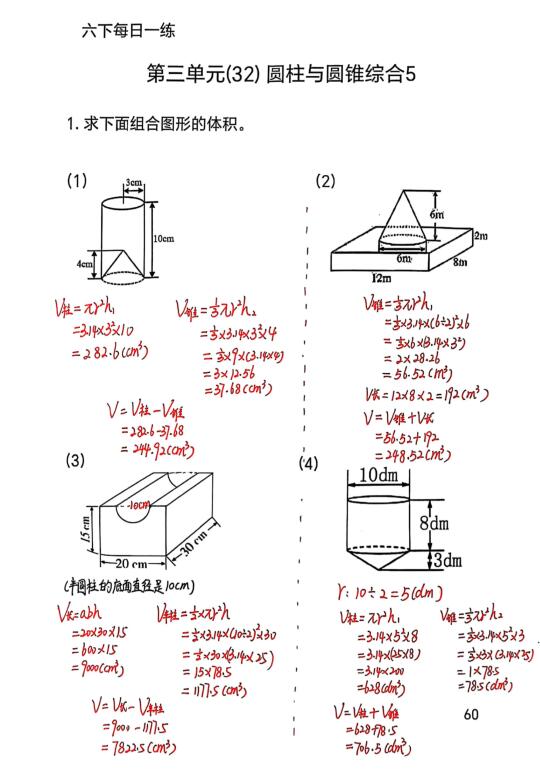 六下每日一练
第三单元(32) 圆柱与圆锥综合5
1. 求下面组合图形的体积。
(1)
3cm
10cm
4cm
V柱=πr²h₁
=3.14×3²×10
=282.6(cm³)
V锥=⅓πr²h₂
=⅓×3.14×3²×4
=⅓×9×(3.14×4)
=3×12.56
=37.68(cm³)
V=V柱-V锥
=282.6-37.68
=244.92(cm³)
(2)
6m
2m
6m
8m
12m
V锥=⅓πr²h₁
=⅓×3.14×(6÷2)²×6
=⅓×6×(3.14×3²)
=2×28.26
=56.52(m³)
V长=12×8×2=192(m³)
V=V锥+V长
=56.52+192
=248.52(m³)
(3)
10cm
15 cm
20 cm
30 cm
(半圆柱的底面直径是10cm)
V长=abh
=20×30×15
=600×15
=9000(cm³)
V半柱=½×πr²h
=½×3.14×(10÷2)²×30
=½×30×(3.14×25)
=15×78.5
=1177.5(cm³)
V=V长-V半柱
=9000-1177.5
=7822.5(cm³)
(4)
10dm
8dm
3dm
r: 10÷2=5(dm)
V柱=πr²h₁
=3.14×5²×8
=3.14×(25×8)
=3.14×200
=628(dm³)
V锥=⅓πr²h₂
=⅓×3.14×5²×3
=⅓×3×(3.14×25)
=1×78.5
=78.5(dm³)
V=V柱+V锥
=628+78.5
=706.5(dm³)
60